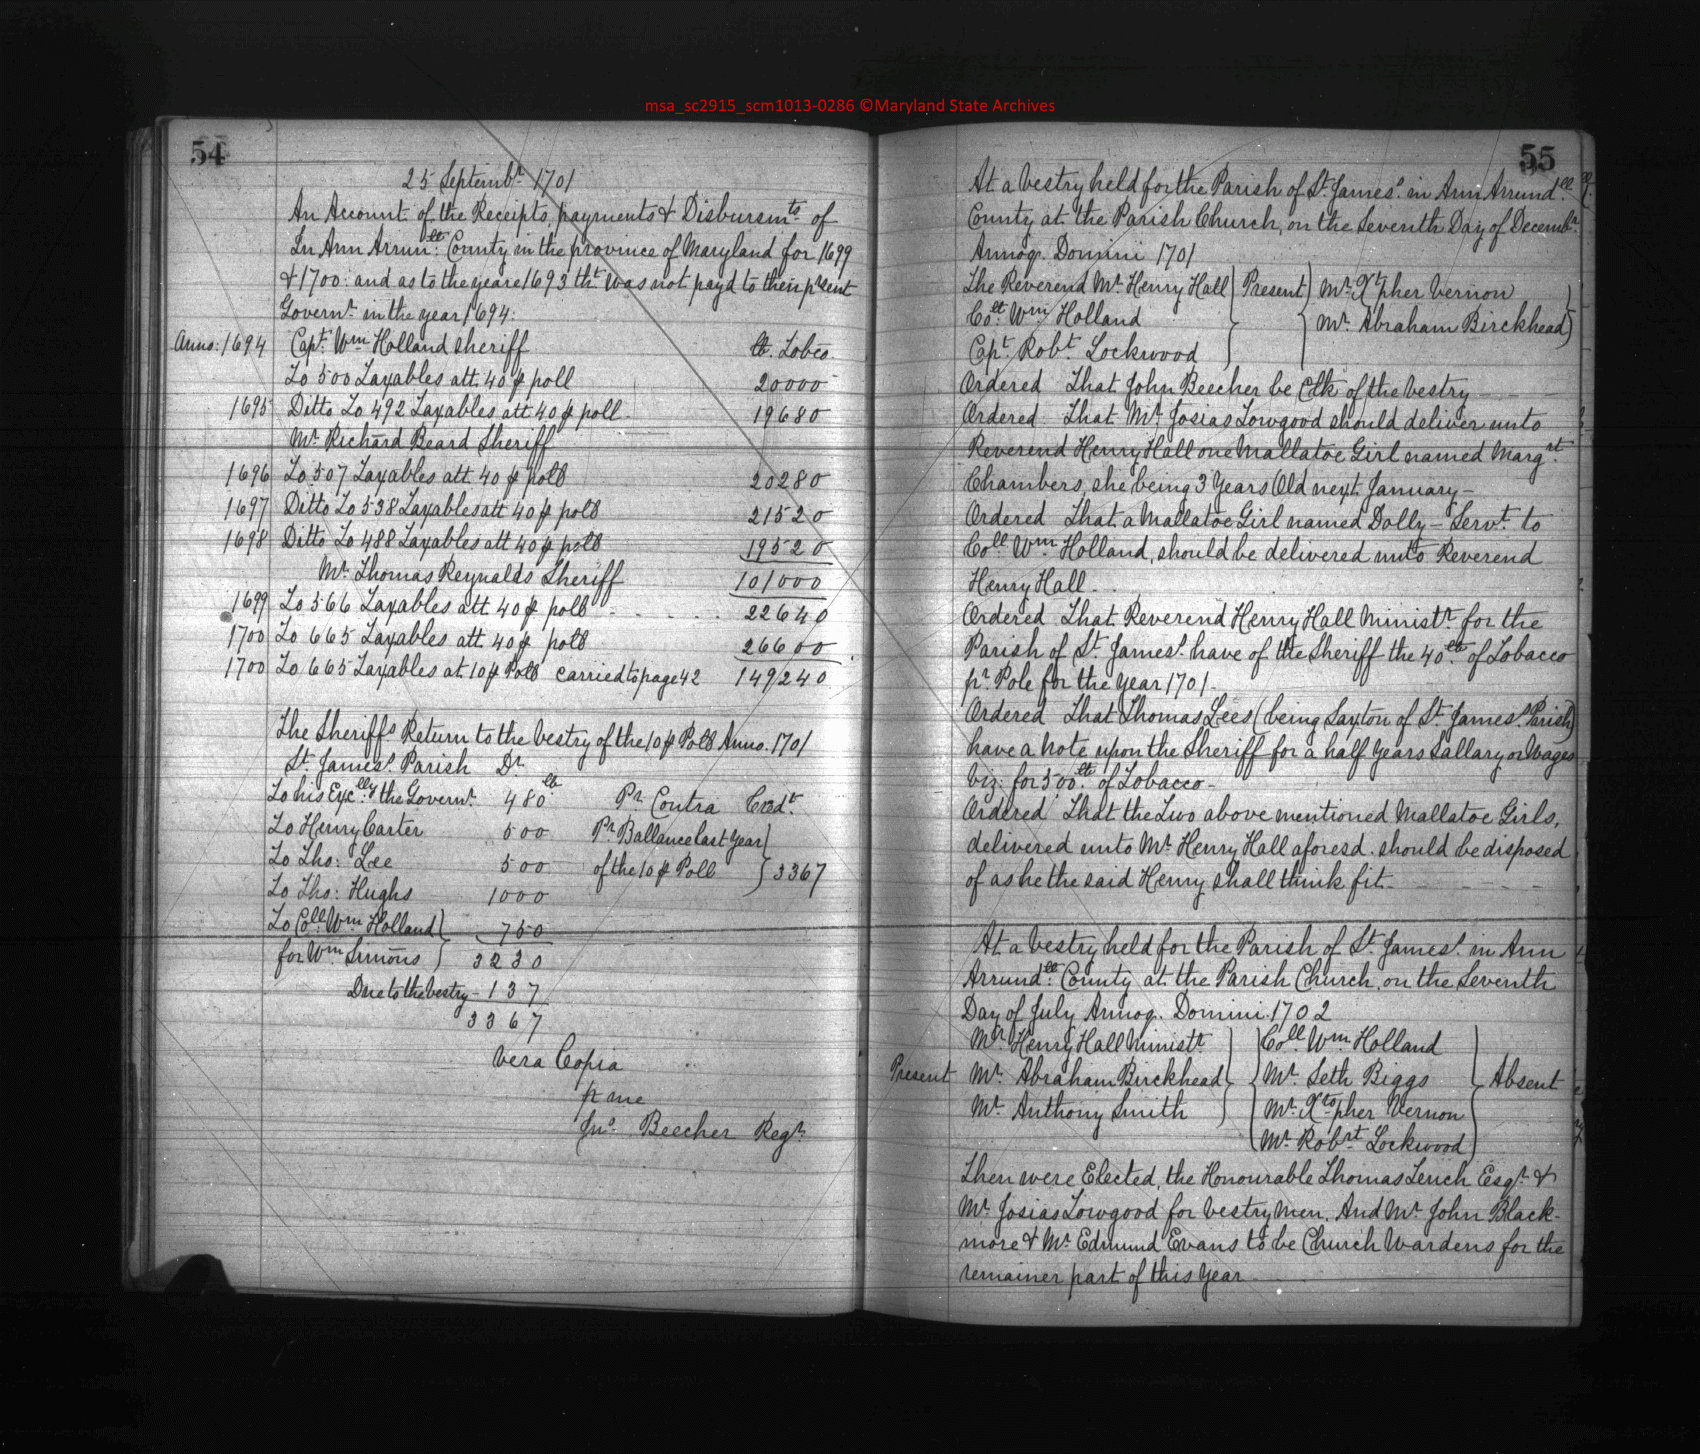 msa_sc2915_scm1013-0286 ©Maryland State Archives
54
25 Septembr 1701
An Account of the Receipts, payments & Disbursmts of
In Ann Arrunlt County in the province of Maryland for 1699
& 1700: and as to the yeare 1693 tht was not payd to their prsent
Governr in the year 1694:
Anno: 1694 Capt Wm Holland sheriff lb. Tobco
To 500 Taxables att 40 ⅌ poll 20000
1695 Ditto To 492 Taxables att 40 ⅌ poll 19680
Mr Richard Beard Sheriff
1696 To 507 Taxables att 40 ⅌ poll 20280
1697 Ditto To 538 Taxables att 40 ⅌ poll 21520
1698 Ditto To 488 Taxables att 40 ⅌ poll 19520
Mr Thomas Reynalds Sheriff 101000
1699 To 566 Taxables att 40 ⅌ poll 22640
1700 To 665 Taxables att 40 ⅌ poll 26600
1700 To 665 Taxables at 10 ⅌ Poll carried to page 42 149240
The Sheriffs Return to the Vestry of the 10 ⅌ Poll Anno. 1701
St James's Parish Dr
To his Exclly the Governr 480lb Pr Contra Credt
To Henry Carter 500 Pr Ballance last year
To Tho: Lee 500 of the 10 ⅌ Poll } 3367
To Tho: Hughs 1000
To Coll Wm Holland } 750
for Wm Simons } 3230
Due to the Vestry - 137
3367
Vera Copia
pr me
Jno Beecher Regr
55
At a Vestry held for the Parish of St James's in Ann Arrundll
County at the Parish Church, on the Seventh Day of Decembr
Annoq. Domini 1701
The Reverend Mr Henry Hall } Present { Mr Xtpher Vernon
Colt Wm Holland } { Mr Abraham Birckhead }
Capt Robt Lockwood }
Ordered That John Beecher be Clk of the Vestry
Ordered That Mr Josias Towgood should deliver unto
Reverend Henry Hall one Mallatoe Girl named Margrt
Chambers, she being 3 Years Old next January -
Ordered That a Mallatoe Girl named Dolly - Servt to
Coll Wm Holland, should be delivered unto Reverend
Henry Hall -
Ordered That Reverend Henry Hall Ministr for the
Parish of St James's have of the Sheriff the 40lb of Tobacco
pr Pole for the year 1701 -
Ordered That Thomas Lees (being Saxton of St James's Parish)
have a note upon the Sheriff for a half Years Sallary or Wages
Viz: for 500lb of Tobacco -
Ordered That the Two above mentioned Mallatoe Girls,
delivered unto Mr Henry Hall aforesd. should be disposed
of as he the said Henry shall think fit -
At a Vestry held for the Parish of St James's in Ann
Arrundll County at the Parish Church, on the Seventh
Day of July Annoq. Domini. 1702
Mr Henry Hall Ministr } { Coll Wm Holland }
Present Mr Abraham Birckhead } { Mr Seth Biggs } Absent
Mr Anthony Smith } { Mr Xtopher Vernon
{ Mr Robrt Lockwood }
Then were Elected, the Honourable Thomas Tench Esqr &
Mr Josias Towgood for Vestry men, And Mr John Black-
more & Mr Edmund Evans to be Church Wardens for the
remainer part of this Year